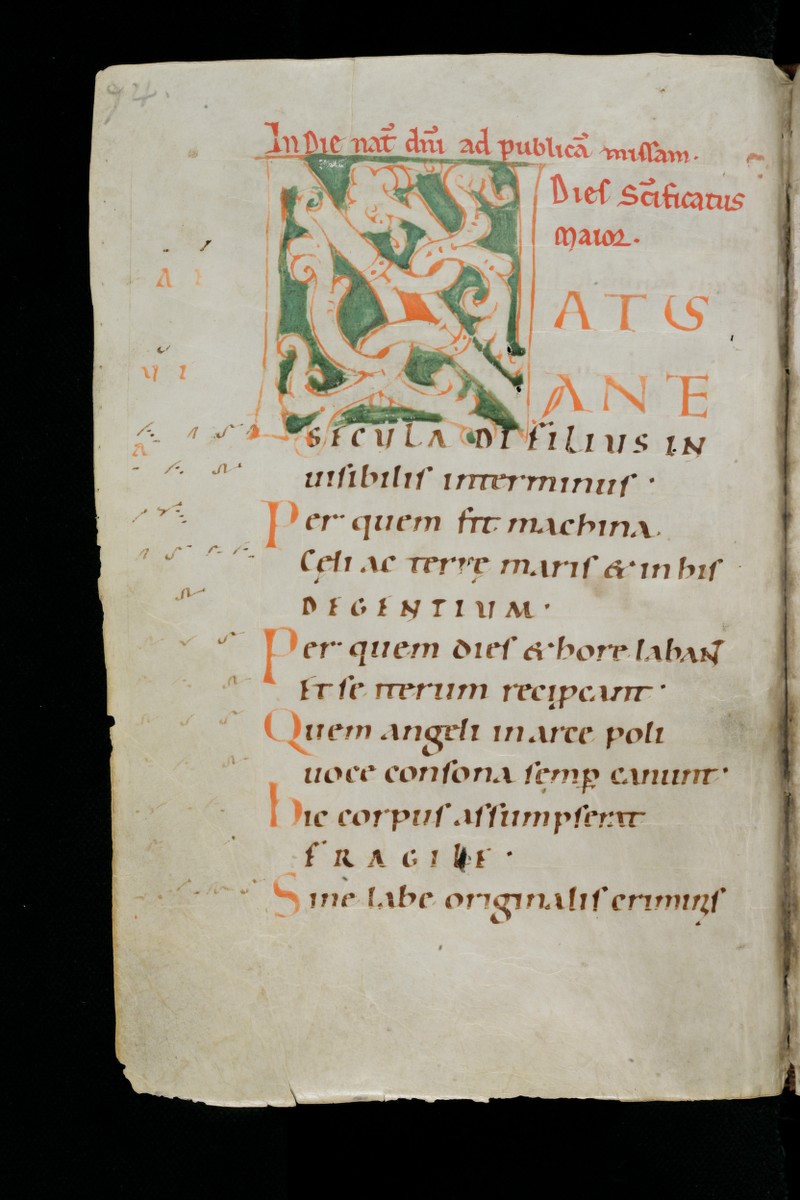 94.
In Die nat̅ dn̅i ad publicā missam.
Dies Sc̅ificatus
Maior.
N ATUS
ANE
SECULA DI FILIUS IN
uisibilis interminus ·
Per quem fit machina.
Cęli ac terrę maris & in his
DEGENTIUM ·
Per quem dies & horę labant
Et se iterum recipiunt ·
Quem angeli in arce poli
uoce consona semp canunt ·
Hic corpus assumpserat
FRAGILE ·
Sine labe originalis criminis